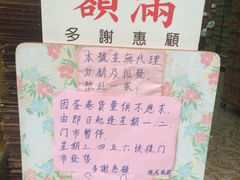 額滿
多謝惠顧
本號並無代理
分銷及批發
只此一家!
因蛋卷貨量供不應求,
由即日起逢星期一.二
門市暫停.
星期三.四.五.六依後門
市發售
多謝惠顧